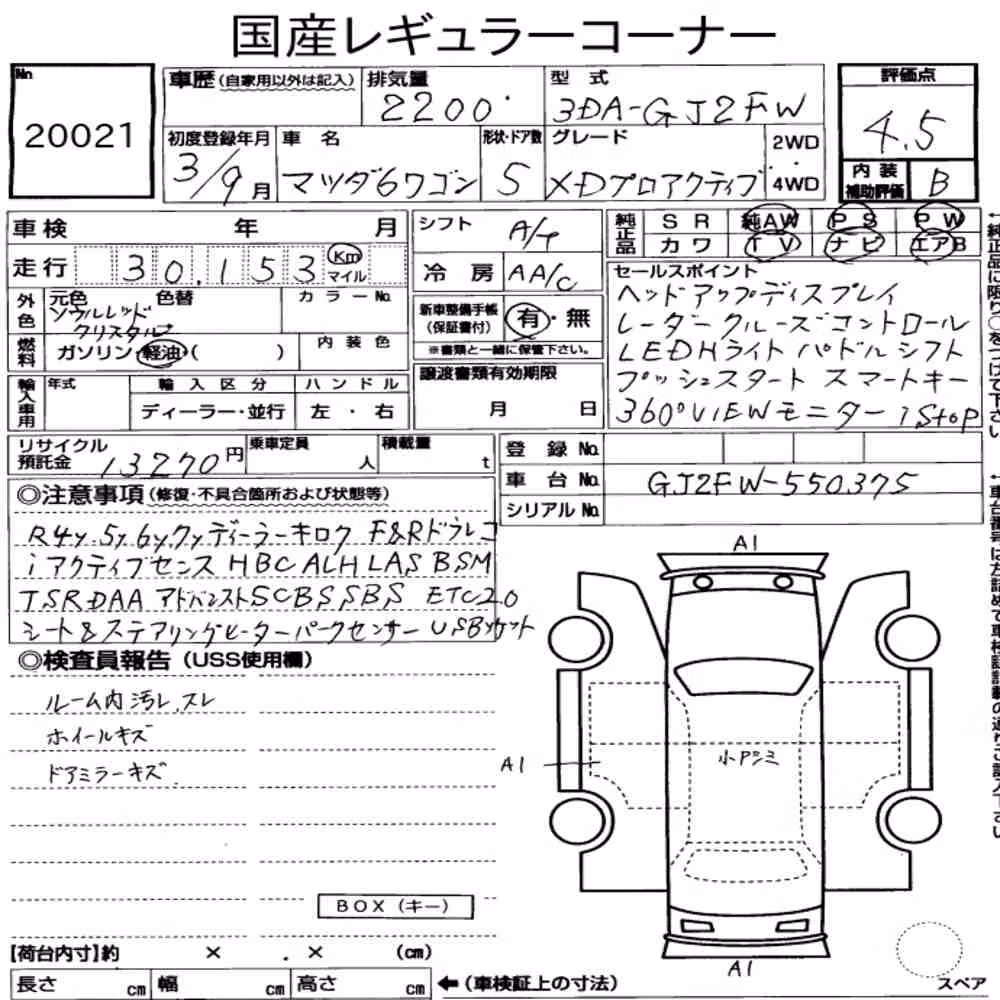 国産レギュラーコーナー
No
20021
車歴(自家用以外は記入)
排気量
2200
型 式
3DA-GJ2FW
評価点
4.5
初度登録年月
3/9月
車 名
マツダ6ワゴン
形状・ドア数
5
グレード
XDプロアクティブ
2WD
4WD
内 装
補助評価
B
車検 年 月
シフト
A/T
純正品
S R 純AW P S P W
カ ワ T V ナ ビ エアB
走行 30,153 Km
マイル
冷 房
AA/C
セールスポイント
ヘッドアップディスプレイ
レーダークルーズコントロール
LEDHライト パドルシフト
プッシュスタート スマートキー
360°VIEWモニター iStop
外色
元色 色替
ソウルレッド
クリスタル
カラーNo.
新車整備手帳
(保証書付)
有・無
※書類と一緒に保管下さい。
燃料
ガソリン・軽油・( )
内 装 色
譲渡書類有効期限
月 日
輸入車用
年式
輸 入 区 分
ディーラー・並行
ハ ン ド ル
左 ・ 右
リサイクル
預託金
13270円
乗車定員
人
積載量
t
登 録 No.
車 台 No.
GJ2FW-550375
シリアル No.
◎注意事項(修復・不具合箇所および状態等)
R4y.5y.6y.7yディーラーキロク F&Rドラレコ
iアクティブセンス HBC ALH LAS BSM
TSR DAA アドバンストSCBS SBS ETC2.0
シート&ステアリングヒーター パークセンサー USBソケット
◎検査員報告(USS使用欄)
ルーム内汚レ.スレ
ホイールキズ
ドアミラーキズ
BOX(キー)
A1
A1
小Pシミ
A1
スペア
【荷台内寸】約 × . × (cm)
長さ cm
幅 cm
高さ cm
←(車検証上の寸法)